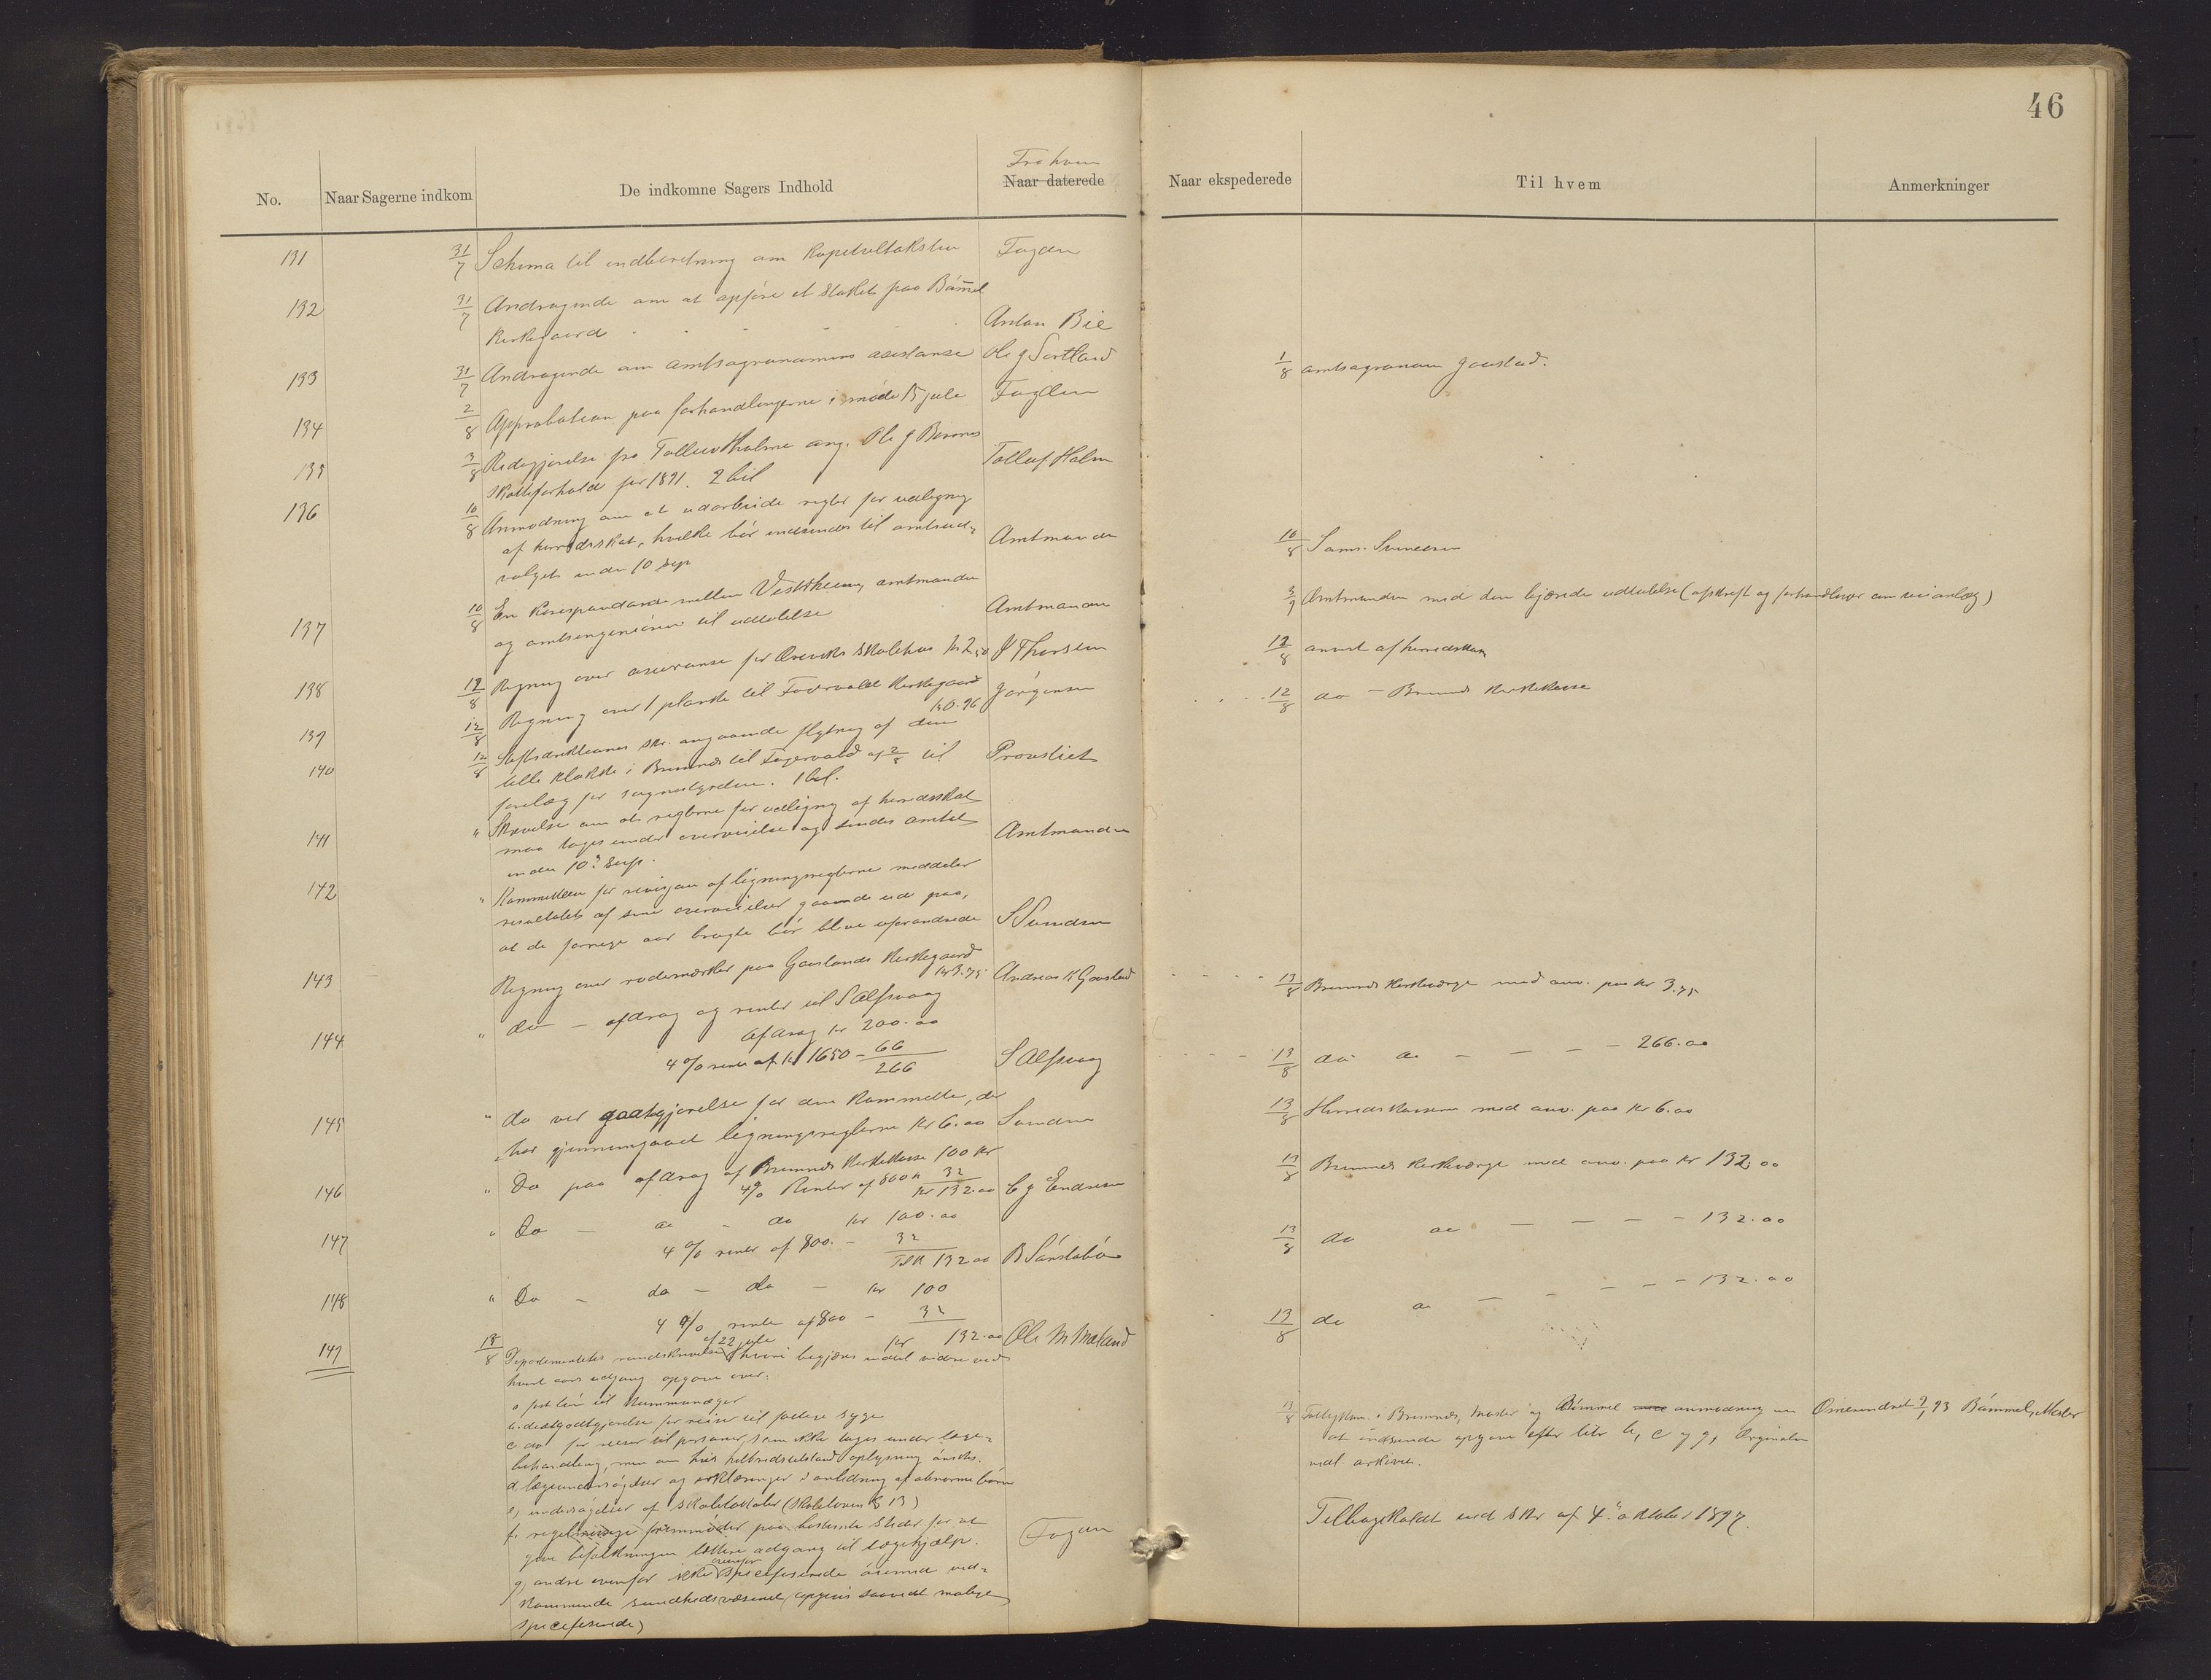 46
Fra hvem
No.
Naar Sagerne indkom
De indkomne Sagers Indhold
Naar daterede
Naar ekspederede
Til hvem
Anmerkninger
131 31/7 Schema til indberetning om Kapeltaksten Fogden
132 31/7 Andragende om at opføre et Stakit paa Bømmel
Kirkegaard Anton Bie
133 31/7 Andragende om amtsagronomens assistanse Ole J Sortland 1/8 amtsagronom Gaustad.
134 2/8 Approbation paa forhandlingerne i møde 15 jule Fogden
135 3/8 Redegjørelse fra Tollef Holme ang. Ole J
Skatteforhold for 1891. 2 bil Tollef Holm
136 10/8 Anmodning om at udarbeide regler for udligning
af herredsskat, hvilke bør indsendes til amtsud-
valget inden 10 Sep Amtmanden 10/8 Sams. Svendsen
137 10/8 En Korespondanse mellem Vestrheim, amtmanden
og amtsingeniøren til udtalelse Amtmanden 3/9 Amtmanden med den begjærede udtalelse (afskrift og forhandlinger om veianlæg)
138 12/8 Regning over assuranse for Skolehus Kr 2,50 J Thorsen 12/8 anvist af herredskas
139 12/8 Regning over 1 planke til Kirkegaard
Kr 0.96 Jørgensen 12/8 do - Bremnes Kirkekasse
140 12/8 Stiftsdirektionens skr. angaaende flytning af den
lille Klokke i Bremnes til af 2/8 til
forelæg for sognestyrelsen. 1 bil. Provstiet
141 " Skrivelse om at reglerne for udligning af herredsskat
maa tages under overveielse og sendes amtet
inden 10de Sep. Amtmanden
142 " Kommitteen for revisjon af ligningsreglerne meddeler
resultatet af sine overveielser gaaende ud paa,
at de forrige aar brugte bør blive uforandrede S Svendsen
143 Regning over rodemærker paa Goarlands Kirkegaard
Kr 3.75 Andreas K Goarland 13/8 Bremnes Kirkeværge med anv. paa Kr 3.75
144 " do - afdrag og renter til S Alfsvaag
Afdrag kr 200.00
4 % rente af Kr 1650 - 66
266 S Alfsvaag 13/8 do do - - - - 266.00
145 " do ver godtgjørelse for den Kommitte, der
har gjennemgaaet ligningsreglerne Kr 6.00 Svendsen 13/8 Herredskassen med anv. paa Kr 6.00
146 " Do paa afdrag af Bremnes Kirkekasse 100 Kr
4% Renter af 800 " 32
Kr 132.00 C J Endresen 13/8 Bremnes Kirkeværge med anv. paa Kr 132,00
147 " Do - do - do kr 100.00
4 % renter af 800. - 32
Kr 132 00 13/8 do do - - - - 132.00
148 " Do - do - do - kr 100
4 % renter af 800 - 32
kr 132.00 Ole M Mæland 13/8 do do - - - - 132.00
149 13/8 Departementets rundskrivelse af 22 jule hvori begjæres indtil videre ved
hvert aars udgang opgave over:
a fast løn til Kommunelæger
b. diætgodtgjørelse for reiser til fattige syge
c do for reiser til personer, som ikke tages under læge-
behandling, men om hvis helbredstilstand oplysning ønskes.
d lægeundersøgelser og erklæringer i anledning af abnorme børn
e, undersøgelser af skolelokaler (skolelovens § 13)
f. regelmæssige fremmøder paa bestemte steder for at
give befolkningen lettere adgang til lægehjælp.
g, andre ovenfor ikke specifiserede øiemed ved-
kommende sundhedsvæsenet (opgives saavidt mulig
specifiserede) Fogden
13/8 Fattigkom. i Bremnes, Moster og Bømmel anmodning om
at indsende opgave efter litr b, c og g, Originalen
vedl. arkivet.
Omesendret 9/1 93 Bømmel, Moster
Tilbagekaldt ved skr af 4de oktober 1897.